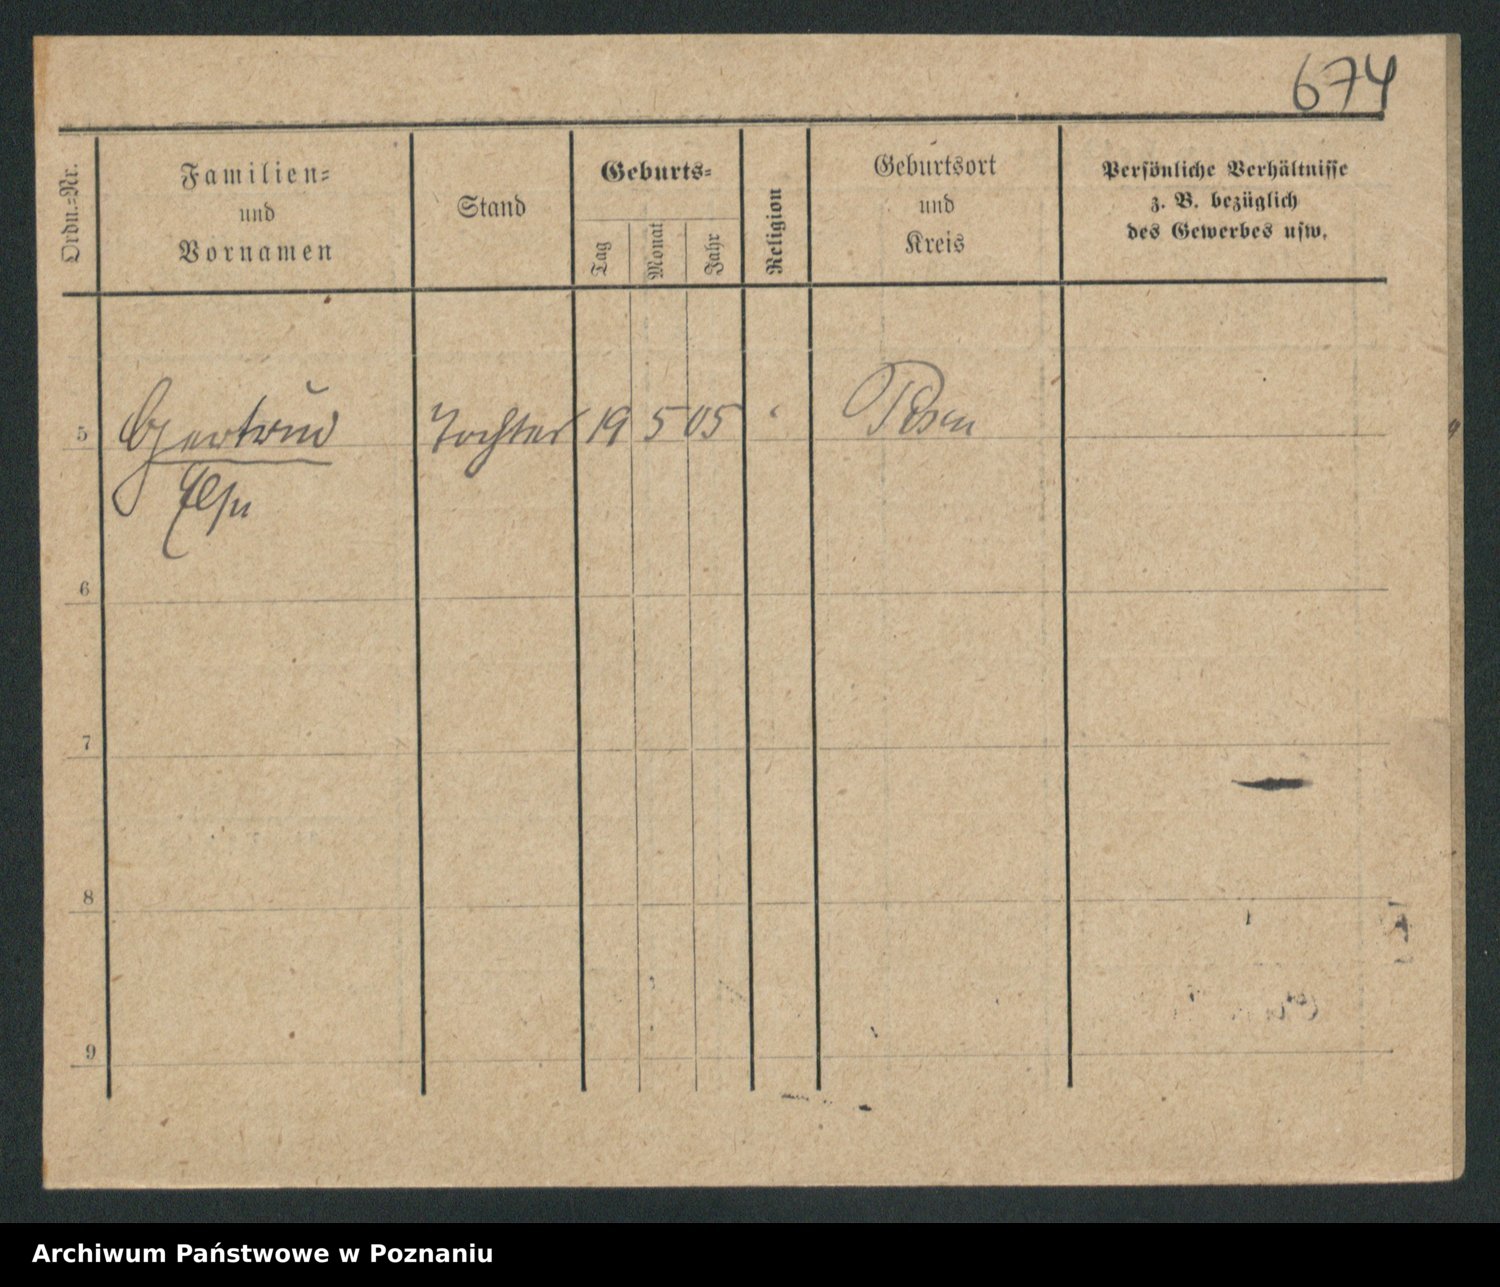 674
Ordn.-Nr.
Familien-
und
Vornamen
Stand
Geburts-
Tag
Monat
Jahr
Religion
Geburtsort
und
Kreis
Persönliche Verhältnisse
z. B. bezüglich
des Gewerbes usw.
5 Gertrud Tochter 19 5 05 Posen
Else
6
7
8
9
Archiwum Państwowe w Poznaniu